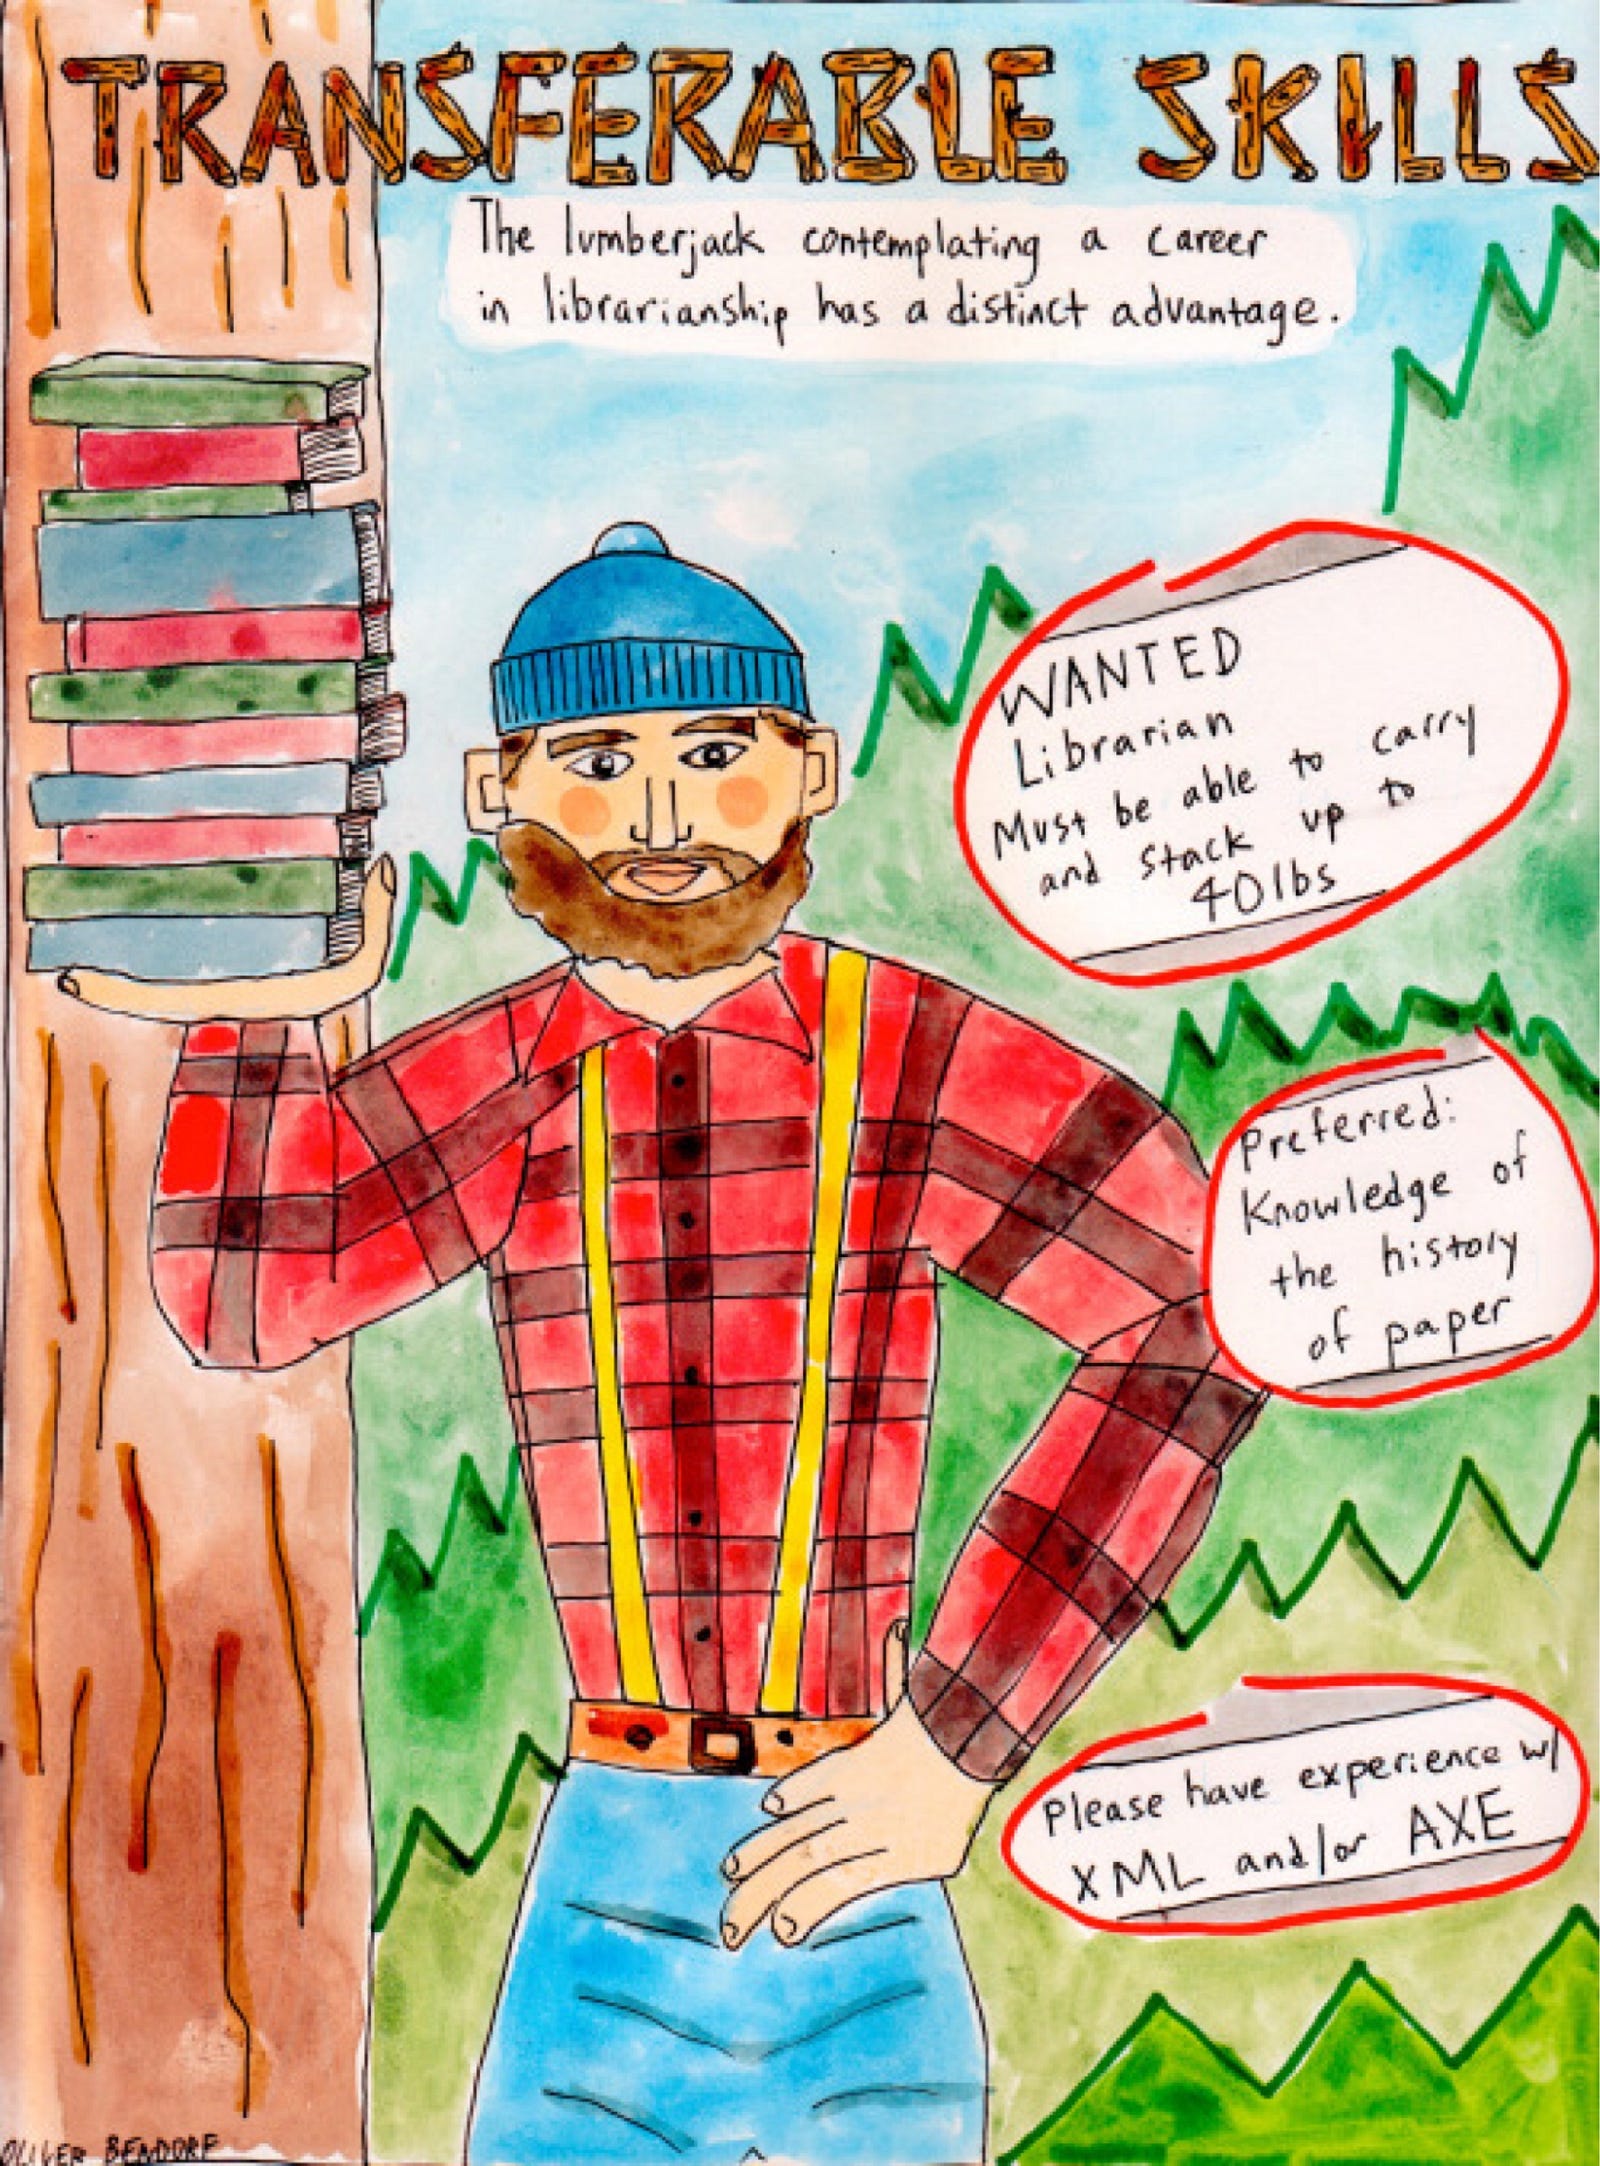 TRANSFERABLE SKILLS
The lumberjack contemplating a career
in librarianship has a distinct advantage.
WANTED
Librarian
Must be able to carry
and stack up to
40lbs
Preferred:
Knowledge of
the history
of paper
Please have experience w/
XML and/or AXE
OLIVER BENDORF